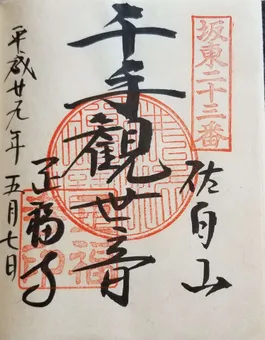 坂東二十三番
佐白山
千手観世音
正福寺
平成廿九年五月七日